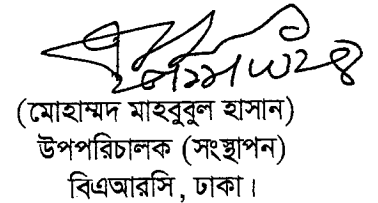 (মোহাম্মদ মাহবুবুল হাসান)
উপপরিচালক (সংস্থাপন)
বিএআরসি, ঢাকা।